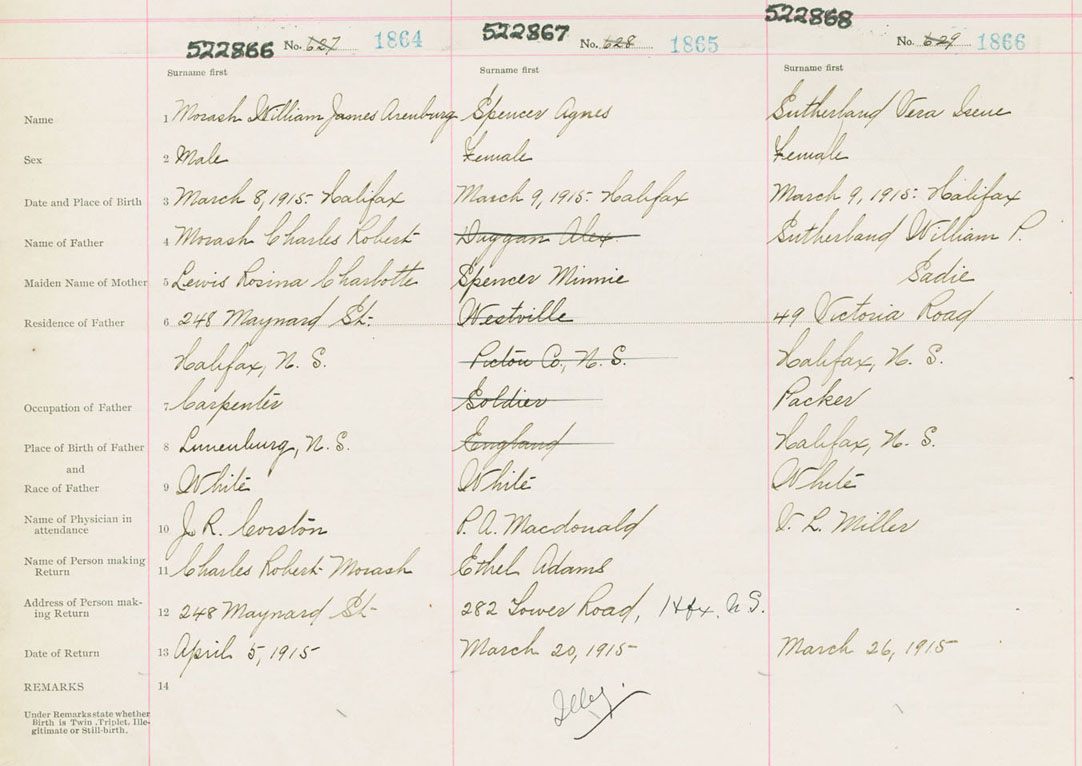 522866 No. 627 1864 522867 No. 628 1865 522868 No. 629 1866
Surname first Surname first Surname first
Name 1 Morash William James Arenburg Spencer Agnes Sutherland Vera Irene
Sex 2 Male Female Female
Date and Place of Birth 3 March 8, 1915 - Halifax March 9, 1915 - Halifax March 9, 1915 - Halifax
Name of Father 4 Morash Charles Robert Duggan Alex. Sutherland William P.
Maiden Name of Mother 5 Lewis Rosina Charlotte Spencer Minnie Sadie
Residence of Father 6 248 Maynard St. Westville 49 Victoria Road
Halifax, N. S. Pictou Co., N. S. Halifax, N. S.
Occupation of Father 7 Carpenter Soldier Packer
Place of Birth of Father 8 Lunenburg, N. S. England Halifax, N. S.
and
Race of Father 9 White White White
Name of Physician in attendance 10 J. R. Corston P. A. Macdonald V. L. Miller
Name of Person making Return 11 Charles Robert Morash Ethel Adams
Address of Person making Return 12 248 Maynard St. 282 Tower Road, Hfx. N S.
Date of Return 13 April 5, 1915 March 20, 1915 March 26, 1915
REMARKS 14
Under Remarks state whether
Birth is Twin, Triplet, Ille-
gitimate or Still-birth.
Illeg.